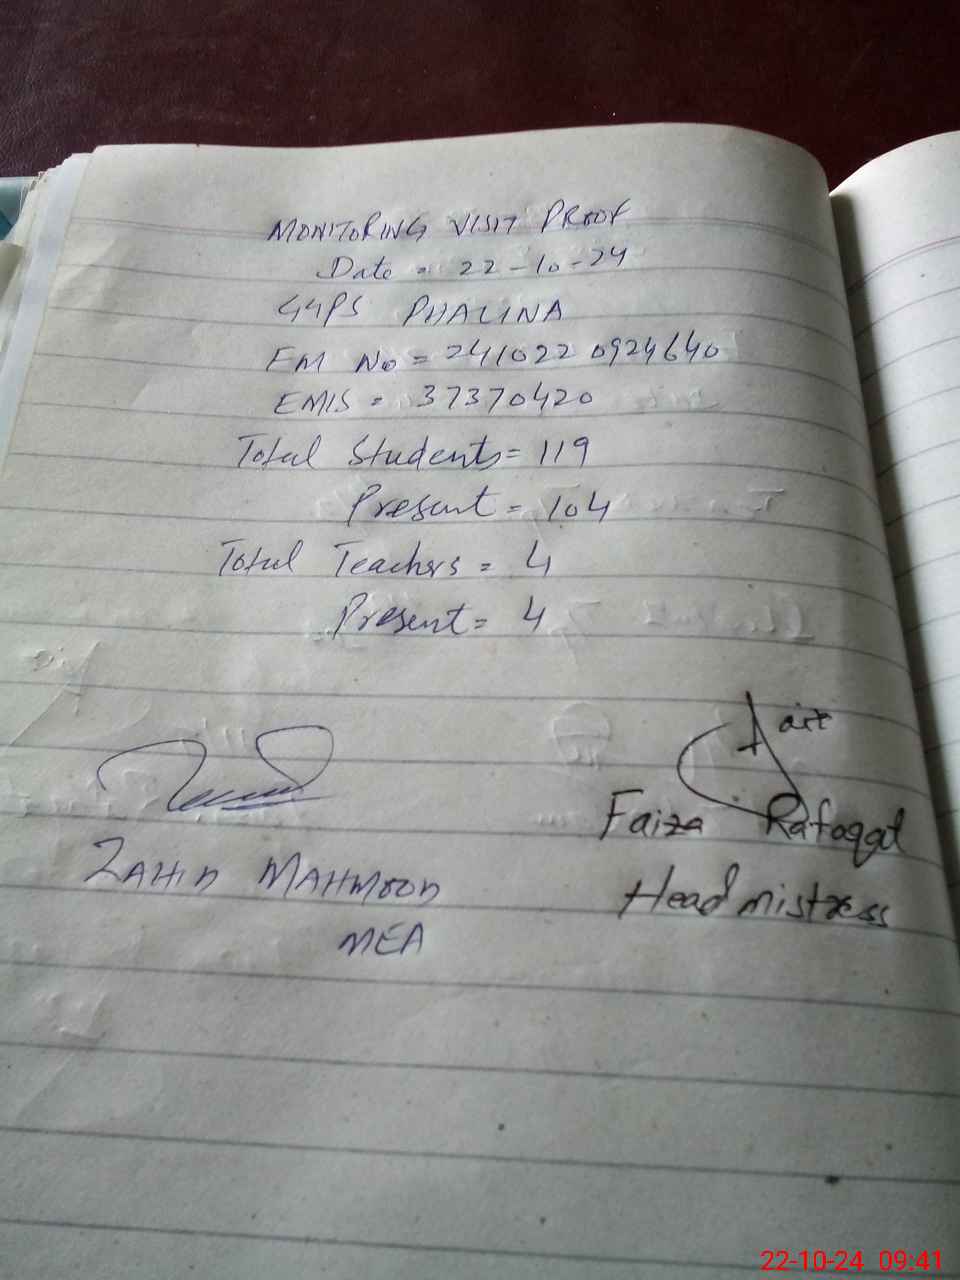 MONITORING VISIT PROOF
Date = 22-10-24
GGPS PHALINA
FM No = 2410220924640
EMIS = 37370420
Total Students = 119
Present = 104
Total Teachers = 4
Present = 4
Faiza Rafaqat
ZAHID MAHMOOD
Headmistress
MEA
22-10-24 09:41